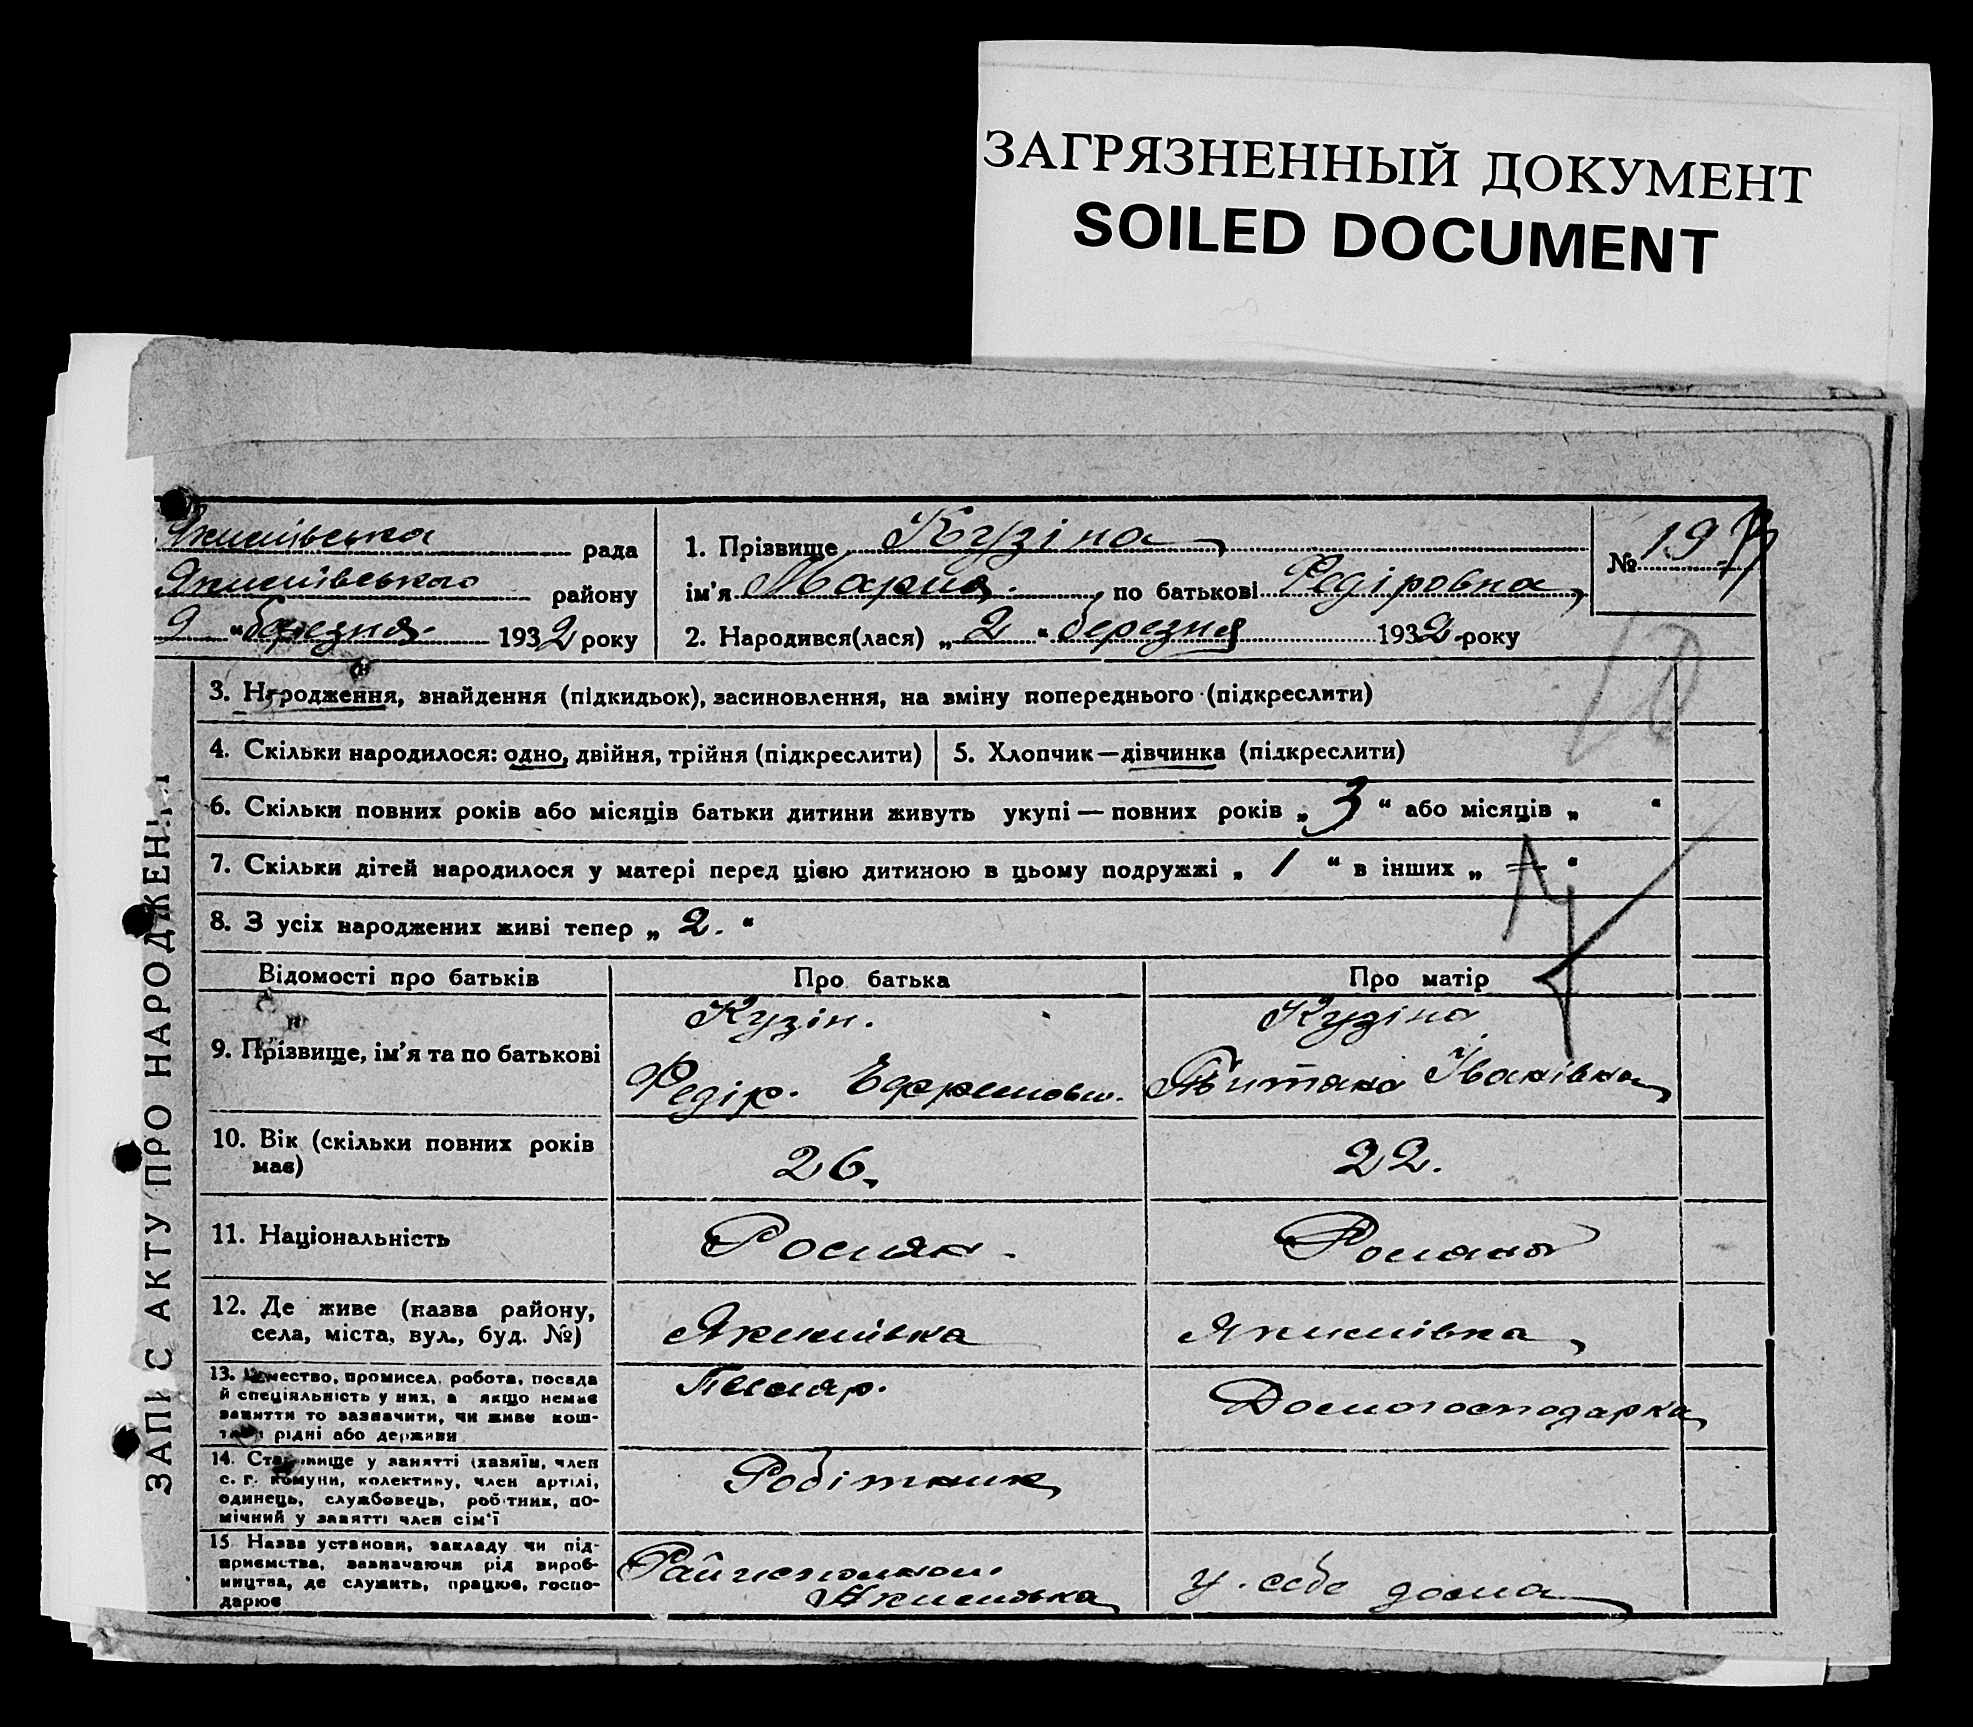 ЗАГРЯЗНЕННЫЙ ДОКУМЕНТ
SOILED DOCUMENT
Якимівська рада
Якимівського району
9 „березня 1932 року
1. Прізвище Кузіна
ім'я Мария по батькові Федіровна
2. Народився(лася) „2“ березня 1932 року
№ 19
10
ЗАПИС АКТУ ПРО НАРОДЖЕН
3. Народження, знайдення (підкидьок), засиновлення, на зміну попереднього (підкреслити)
4. Скільки народилося: одно, двійня, трійня (підкреслити)
5. Хлопчик—дівчинка (підкреслити)
6. Скільки повних років або місяців батьки дитини живуть укупі — повних років „3“ або місяців „ “
7. Скільки дітей народилося у матері перед цією дитиною в цьому подружжі „1“ в інших „—“
8. З усіх народжених живі тепер „2.“
Відомості про батьків Про батька Про матір
9. Прізвище, ім'я та по батькові
Кузін.
Федір. Ефремови.
Кузіна
Іванівна
10. Вік (скільки повних років
має)
26. 22.
11. Національність Росиян. Росияна
12. Де живе (назва району,
села, міста, вул., буд. №)
Якимівка Якимівка
13. Ремество, промисел, робота, посада
й спеціяльність у них, а якщо немає
заняття то зазначити, чи живе кош-
рідні або держави
Домогосподарка
14. Становище у занятті (хазяїн, член
с. г. комуни, колективу, член артілі,
одинець, службовець, робітник, по-
мічний у занятті член сім'ї
Робітник
15 Назва установи, закладу чи під-
приємства, зазначаючи рід вироб-
ництва, де служить, працює, госпо-
дарює
Райисполком
Якимовка
у себе дома